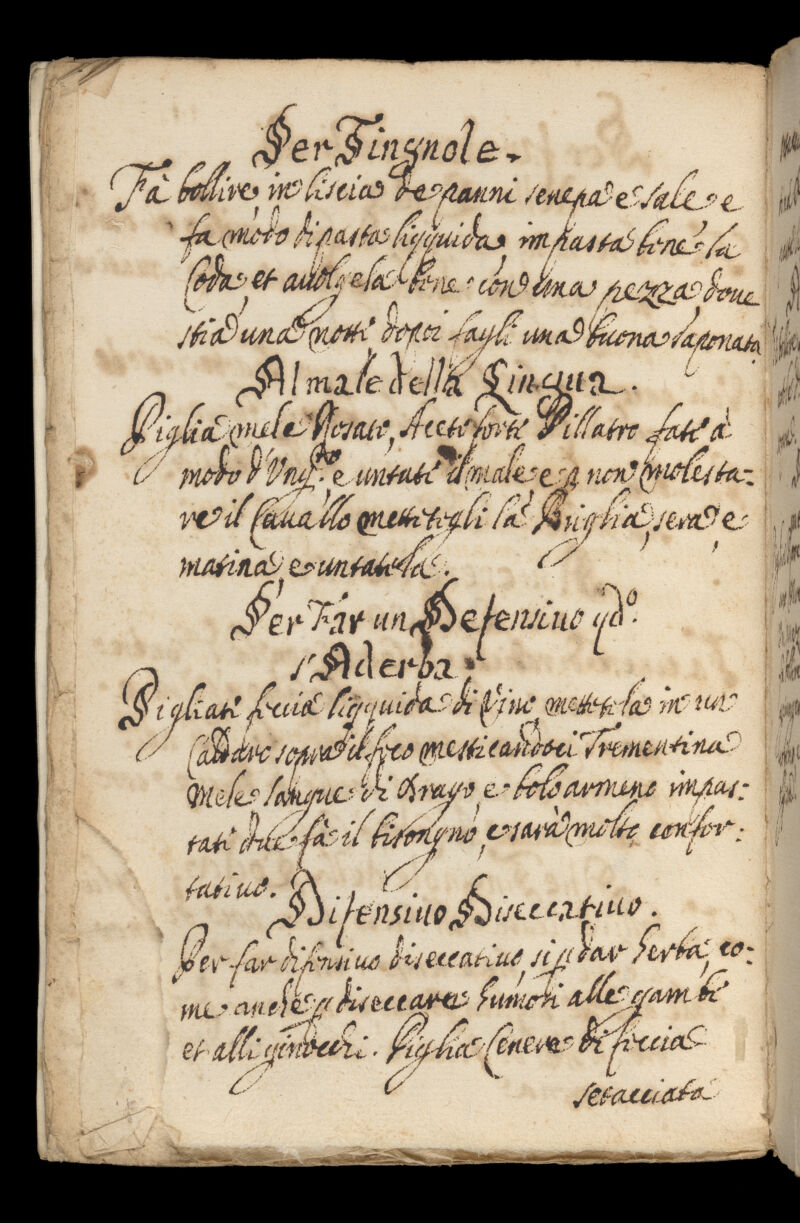 Per Tingnole.
Fà bollire in liscia de panni senepa e sale e
fa modo di pasta liqquida impasta bene la
Coda, et auolgela bene con una pezza, doue
stia una notti dopoi fagli una buona saponata
Al male della Lingua.
Piglia mele Rosato, Aceto forte Pillatro fate à
modo d'Ung.to e untati il male, e p non molesta=
re il Cauallo mettetegli la Briglia, sera, e
matina, e untatela.
Per Far un Defensiuo qd.o
s'Aderba.
Pigliati feccia liqquida di Vino, mettetela in un
Caldaro sopra il foco mesticandoci Trementina
Mele sangue di Drago, e bolo armeno impas=
tati che fà il bisongno, e sarà molto confor=
tatiuo.
Difensiuo Diseccatiuo.
Per far difensiuo diseccatiuo, si p dar herba, co=
me anche p diseccare humori alle gambe
et alli ginocchi. Piglia Cenere di feccia
setacciata